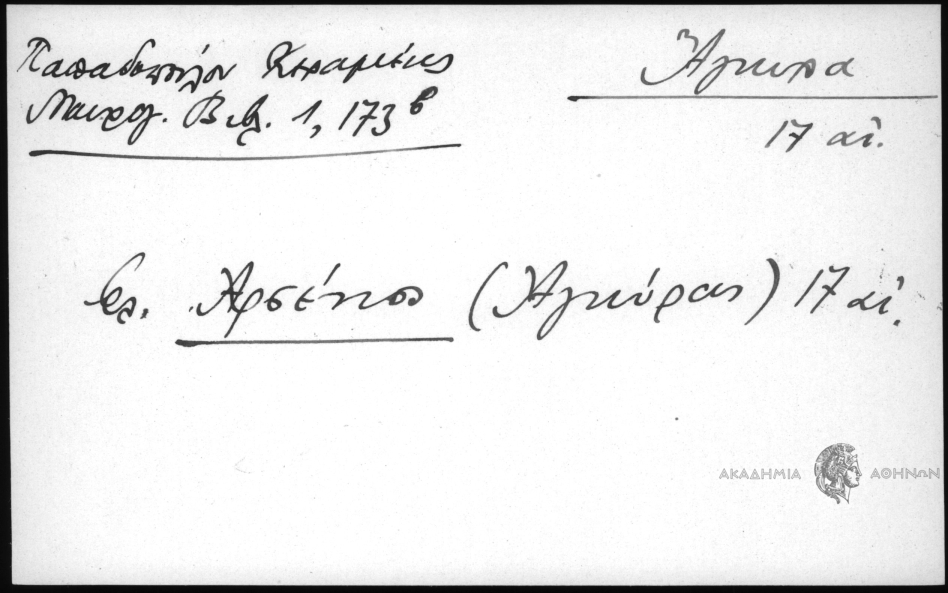 Παπαδοπούλου Κεραμέως
Μαυρογ. Βιβλ. 1, 173β
Ἄγκυρα
17 αἰ.
βλ. Ἀρσένιος (Ἀγκύρας) 17 αἰ.
ΑΚΑΔΗΜΙΑ ΑΘΗΝΩΝ